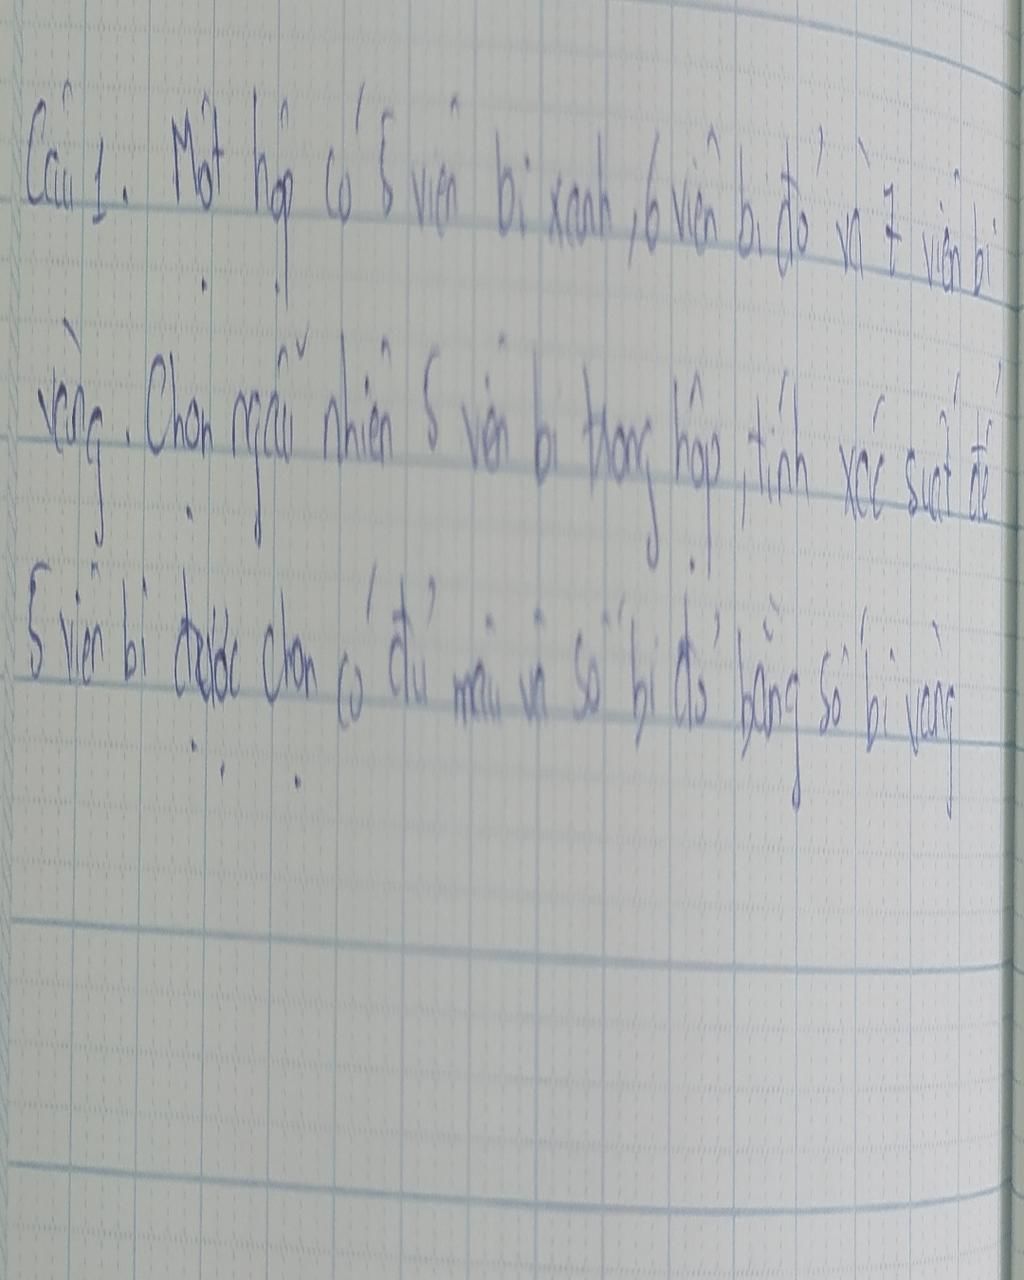 Câu 1. Một hộp có 5 viên bi xanh, 6 viên bi đỏ và 7 viên bi
vàng. Chọn ngẫu nhiên 5 viên bi trong hộp, tính xác suất để
5 viên bi được chọn có đủ màu và số bi đỏ bằng số bi vàng